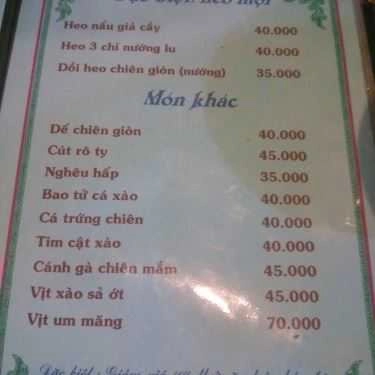 Heo nấu giả cầy 40.000
Heo 3 chỉ nướng lu 40.000
Dồi heo chiên giòn (nướng) 35.000
Món khác
Dế chiên giòn 40.000
Cút rô ty 45.000
Nghêu hấp 35.000
Bao tử cá xào 40.000
Cá trứng chiên 40.000
Tim cật xào 40.000
Cánh gà chiên mắm 45.000
Vịt xào sả ớt 45.000
Vịt um măng 70.000
Đặc biệt :